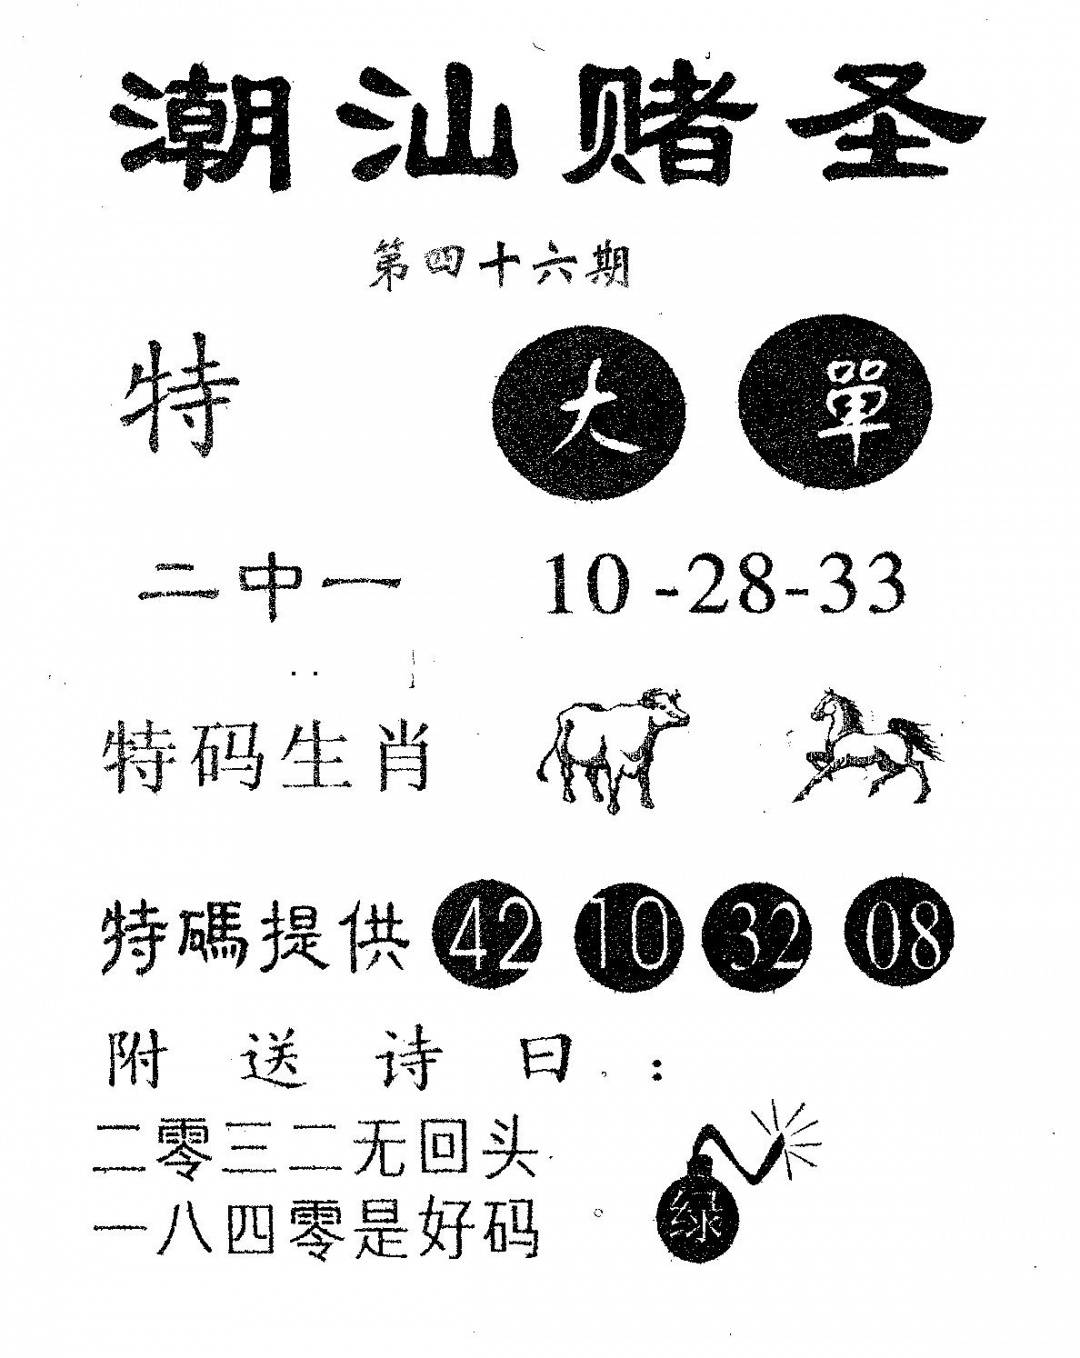 潮汕赌圣
第四十六期
特 大 單
二中一 10-28-33
特码生肖
特碼提供 42 10 32 08
附送诗曰：
二零三二无回头
一八四零是好码
绿